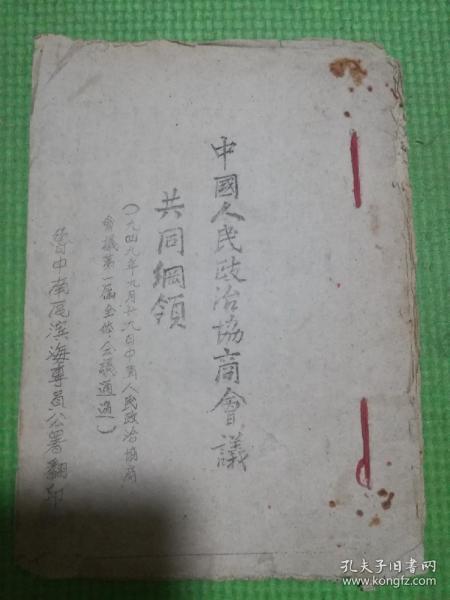 中國人民政治協商會議
共同綱領
(一九四九年九月廿九日中國人民政治協商
會議第一屆全体会議通過)
魯中南區滨海專員公署翻印
孔夫子旧书网
www.kongfz.com